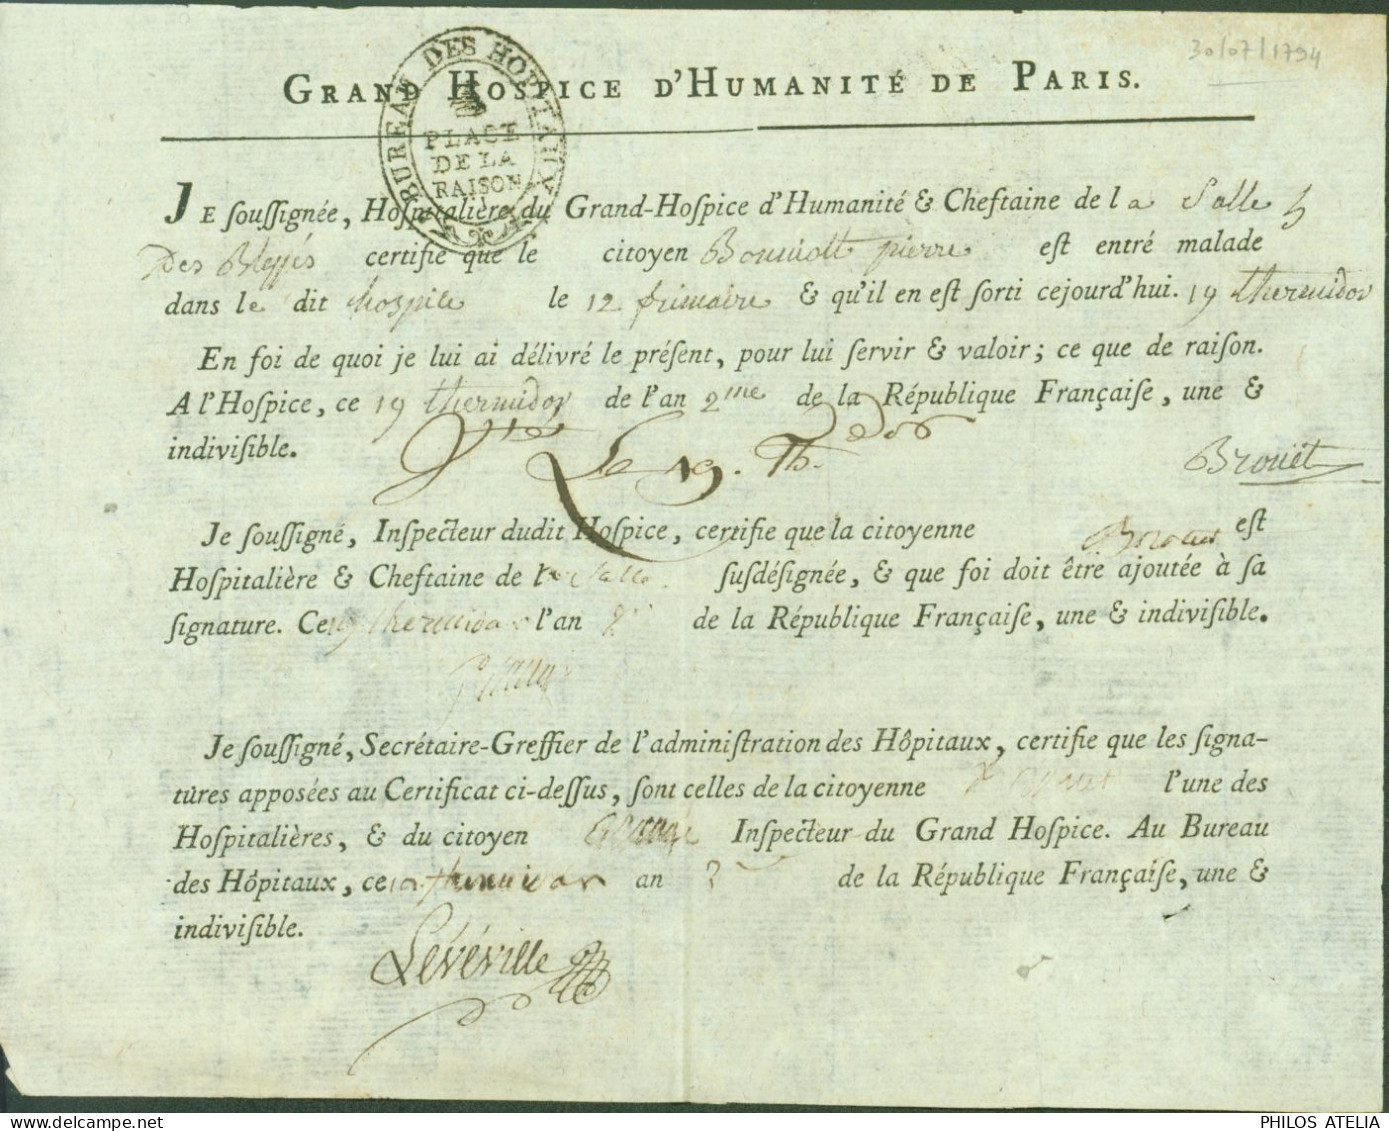 30/07/1794
GRAND HOSPICE D'HUMANITÉ DE PARIS.
BUREAU DES HOPITAUX
PLACE
DE LA
RAISON
JE souſſignée, Hoſpitalière du Grand-Hoſpice d'Humanité & Cheftaine de la Salle
Des Blessés certifie que le citoyen pierre eſt entré malade
dans le dit hospice le 12 frimaire & qu'il en eſt sorti cejourd'hui. 19 thermidor
En foi de quoi je lui ai délivré le préſent, pour lui ſervir & valoir ; ce que de raiſon.
A l'Hoſpice, ce 19 thermidor de l'an 2me de la République Françaiſe, une &
indiviſible.
Le 19. Th.dor
Brouët
Je souſſigné, Inſpecteur dudit Hoſpice, certifie que la citoyenne Brouet eſt
Hoſpitalière & Cheftaine de la salle suſdéſignée, & que foi doit être ajoutée à sa
ſignature. Ce 19 thermidor l'an 2 de la République Françaiſe, une & indiviſible.
Je souſſigné, Secrétaire-Greffier de l'adminiſtration des Hôpitaux, certifie que les ſigna-
tures appoſées au Certificat ci-deſſus, ſont celles de la citoyenne Brouet l'une des
Hoſpitalières, & du citoyen Inſpecteur du Grand Hoſpice. Au Bureau
des Hôpitaux, ce 19 thermidor an 2 de la République Françaiſe, une &
indiviſible.
Levéville
PHILOS ATELIA